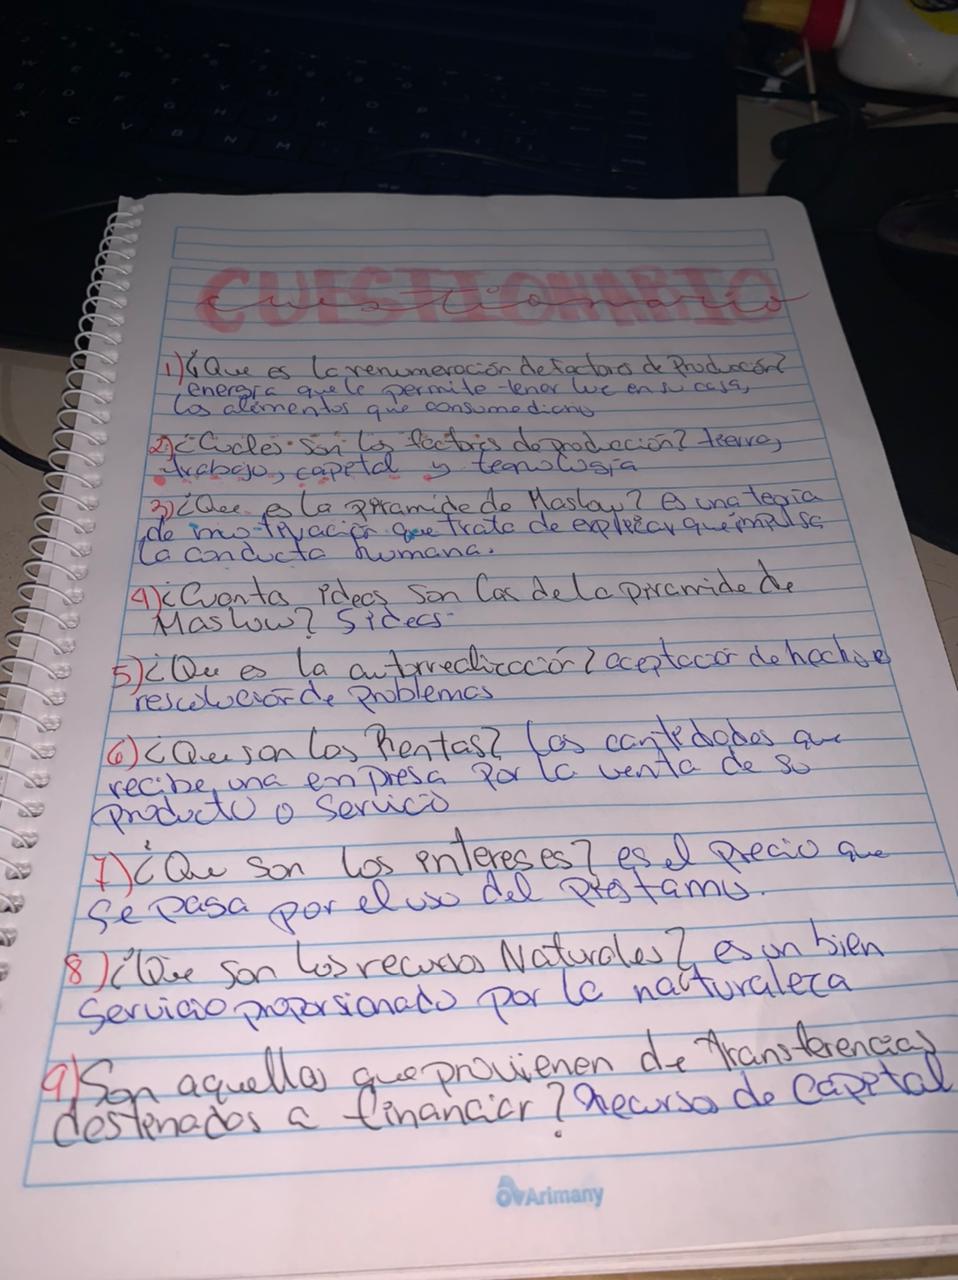 CUESTIONARIO
cuestionario
1) ¿Que es la renumeración de factores de Producción?
energía que le permite tener luz en su casa,
los alimentos que consume diario
2) ¿Cuales son los factores de producción? tierra,
trabajo, capetal y tecnología
3) ¿Que es la piramide de Maslow? es una teoria
de motivación que trata de explicar que impulsa
la conducta humana.
4) ¿Cuanta ideas son las de la piramide de
Maslow? 5 ideas
5) ¿Que es la autorrealización? aceptación de hechos e
resolución de problemas
6) ¿Que son las Rentas? Las cantidades que
recibe una empresa por la venta de su
producto o servicio
7) ¿Que son los intereses? es el precio que
se pasa por el uso del prestamo.
8) ¿Que son los recursos Naturales? es un bien
servicio proporsionado por la naturaleza
9) Son aquellas que provienen de transferencias
destinados a financiar? Recurso de Capital
Arimany